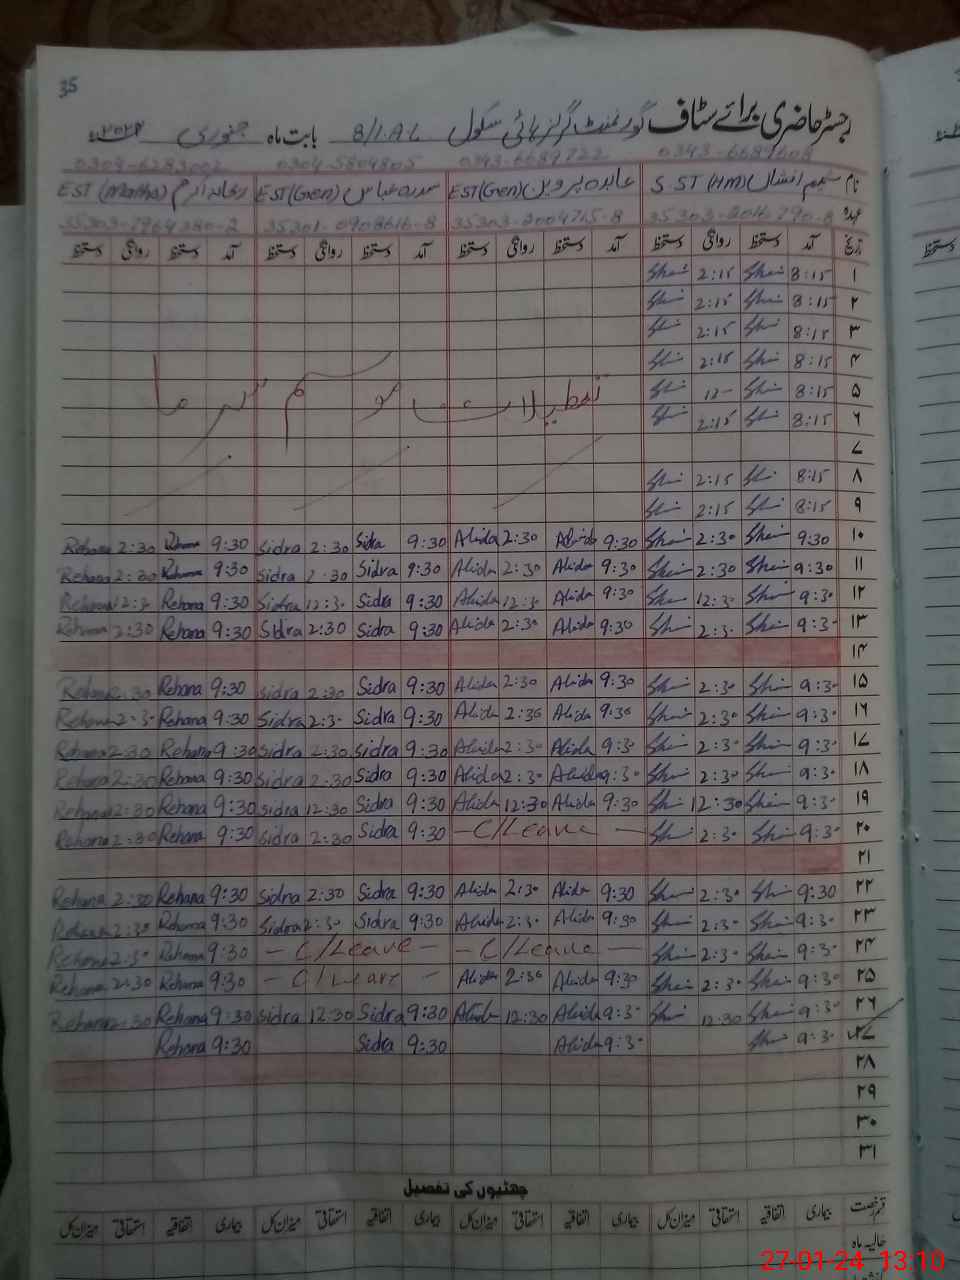 35
رجسٹر حاضری برائے سٹاف گورنمنٹ گرلز ہائی سکول 8/1.A.L بابت ماہ جنوری ۲۰۲۴ء
0343-6689608 0343-6689722 0304-5804805 0304-6283002
نام شمیم افشاں S.ST (HM) عابدہ پروین EST(Gen) سدرہ عباس EST(Gen) EST (Maths)
عہدہ 35303-2016790-8 35303-2004715-8 35301-0908616-8
تاریخ آمد دستخط روانگی دستخط آمد دستخط روانگی دستخط آمد دستخط روانگی دستخط آمد دستخط روانگی دستخط
۱ 8:15 2:15
۲ 8:15 2:15
۳ 8:15 2:15
۴ 8:15 2:15
۵ 8:15 12-
۶ 8:15 2:15
تعطیلات موسم سرما
۷
۸ 8:15 2:15
۹ 8:15 2:15
۱۰ 9:30 2:30 9:30 Abida 2:30 Abida 9:30 Sidra 2:30 Sidra 9:30 2:30 Rehana
۱۱ 9:30 2:30 9:30 Abida 2:30 Abida 9:30 Sidra 2:30 Sidra 9:30 2:30 Rehana
۱۲ 9:3- 12:3- 9:30 Abida 12:3- Abida 9:30 Sidra 12:3- Sidra 9:30 Rehana 12:3- Rehana
۱۳ 9:3- 2:3- 9:30 Abida 2:3- Abida 9:30 Sidra 2:30 Sidra 9:30 Rehana 2:30 Rehana
۱۴
۱۵ 9:3- 2:3- 9:30 Abida 2:30 Abida 9:30 Sidra 2:30 Sidra 9:30 Rehana 2:30 Rehana
۱۶ 9:3- 2:3- 9:30 Abida 2:30 Abida 9:30 Sidra 2:3- Sidra 9:30 Rehana 2:3- Rehana
۱۷ 9:3- 2:3- 9:3- Abida 2:3- Abida 9:30 Sidra 2:30 Sidra 9:30 Rehana 2:30 Rehana
۱۸ 9:3- 2:3- 9:3- Abida 2:3- Abida 9:30 Sidra 2:30 Sidra 9:30 Rehana 2:30 Rehana
۱۹ 9:3- 12:30 9:30 Abida 12:30 Abida 9:30 Sidra 12:30 Sidra 9:30 Rehana 12:30 Rehana
۲۰ 9:3- 2:3- - C/Leave - 9:30 Sidra 2:30 Sidra 9:30 Rehana 2:30 Rehana
۲۱
۲۲ 9:30 2:3- 9:30 Abida 2:30 Abida 9:30 Sidra 2:30 Sidra 9:30 Rehana 2:30 Rehana
۲۳ 9:3- 2:3- 9:30 Abida 2:3- Abida 9:30 Sidra 2:30 Sidra 9:30 Rehana 2:30 Rehana
۲۴ 9:3- 2:3- - C/Leave - - C/Leave - 9:30 Rehana 2:30 Rehana
۲۵ 9:3- 2:3- 9:30 Abida 2:30 Abida - C/Leave - 9:30 Rehana 2:30 Rehana
۲۶ 9:3- 12:30 9:3- Abida 12:30 Abida 9:30 Sidra 12:30 Sidra 9:30 Rehana 12:30 Rehana
۲۷ 9:3- 9:3- Abida 9:30 Sidra 9:30 Rehana
۲۸
۲۹
۳۰
۳۱
چھٹیوں کی تفصیل
قسم رخصت بیماری اتفاقیہ استحقاقی میزان کل بیماری اتفاقیہ استحقاقی میزان کل بیماری اتفاقیہ استحقاقی میزان کل بیماری اتفاقیہ استحقاقی میزان کل
حالیہ ماہ
27-01-24 13:10